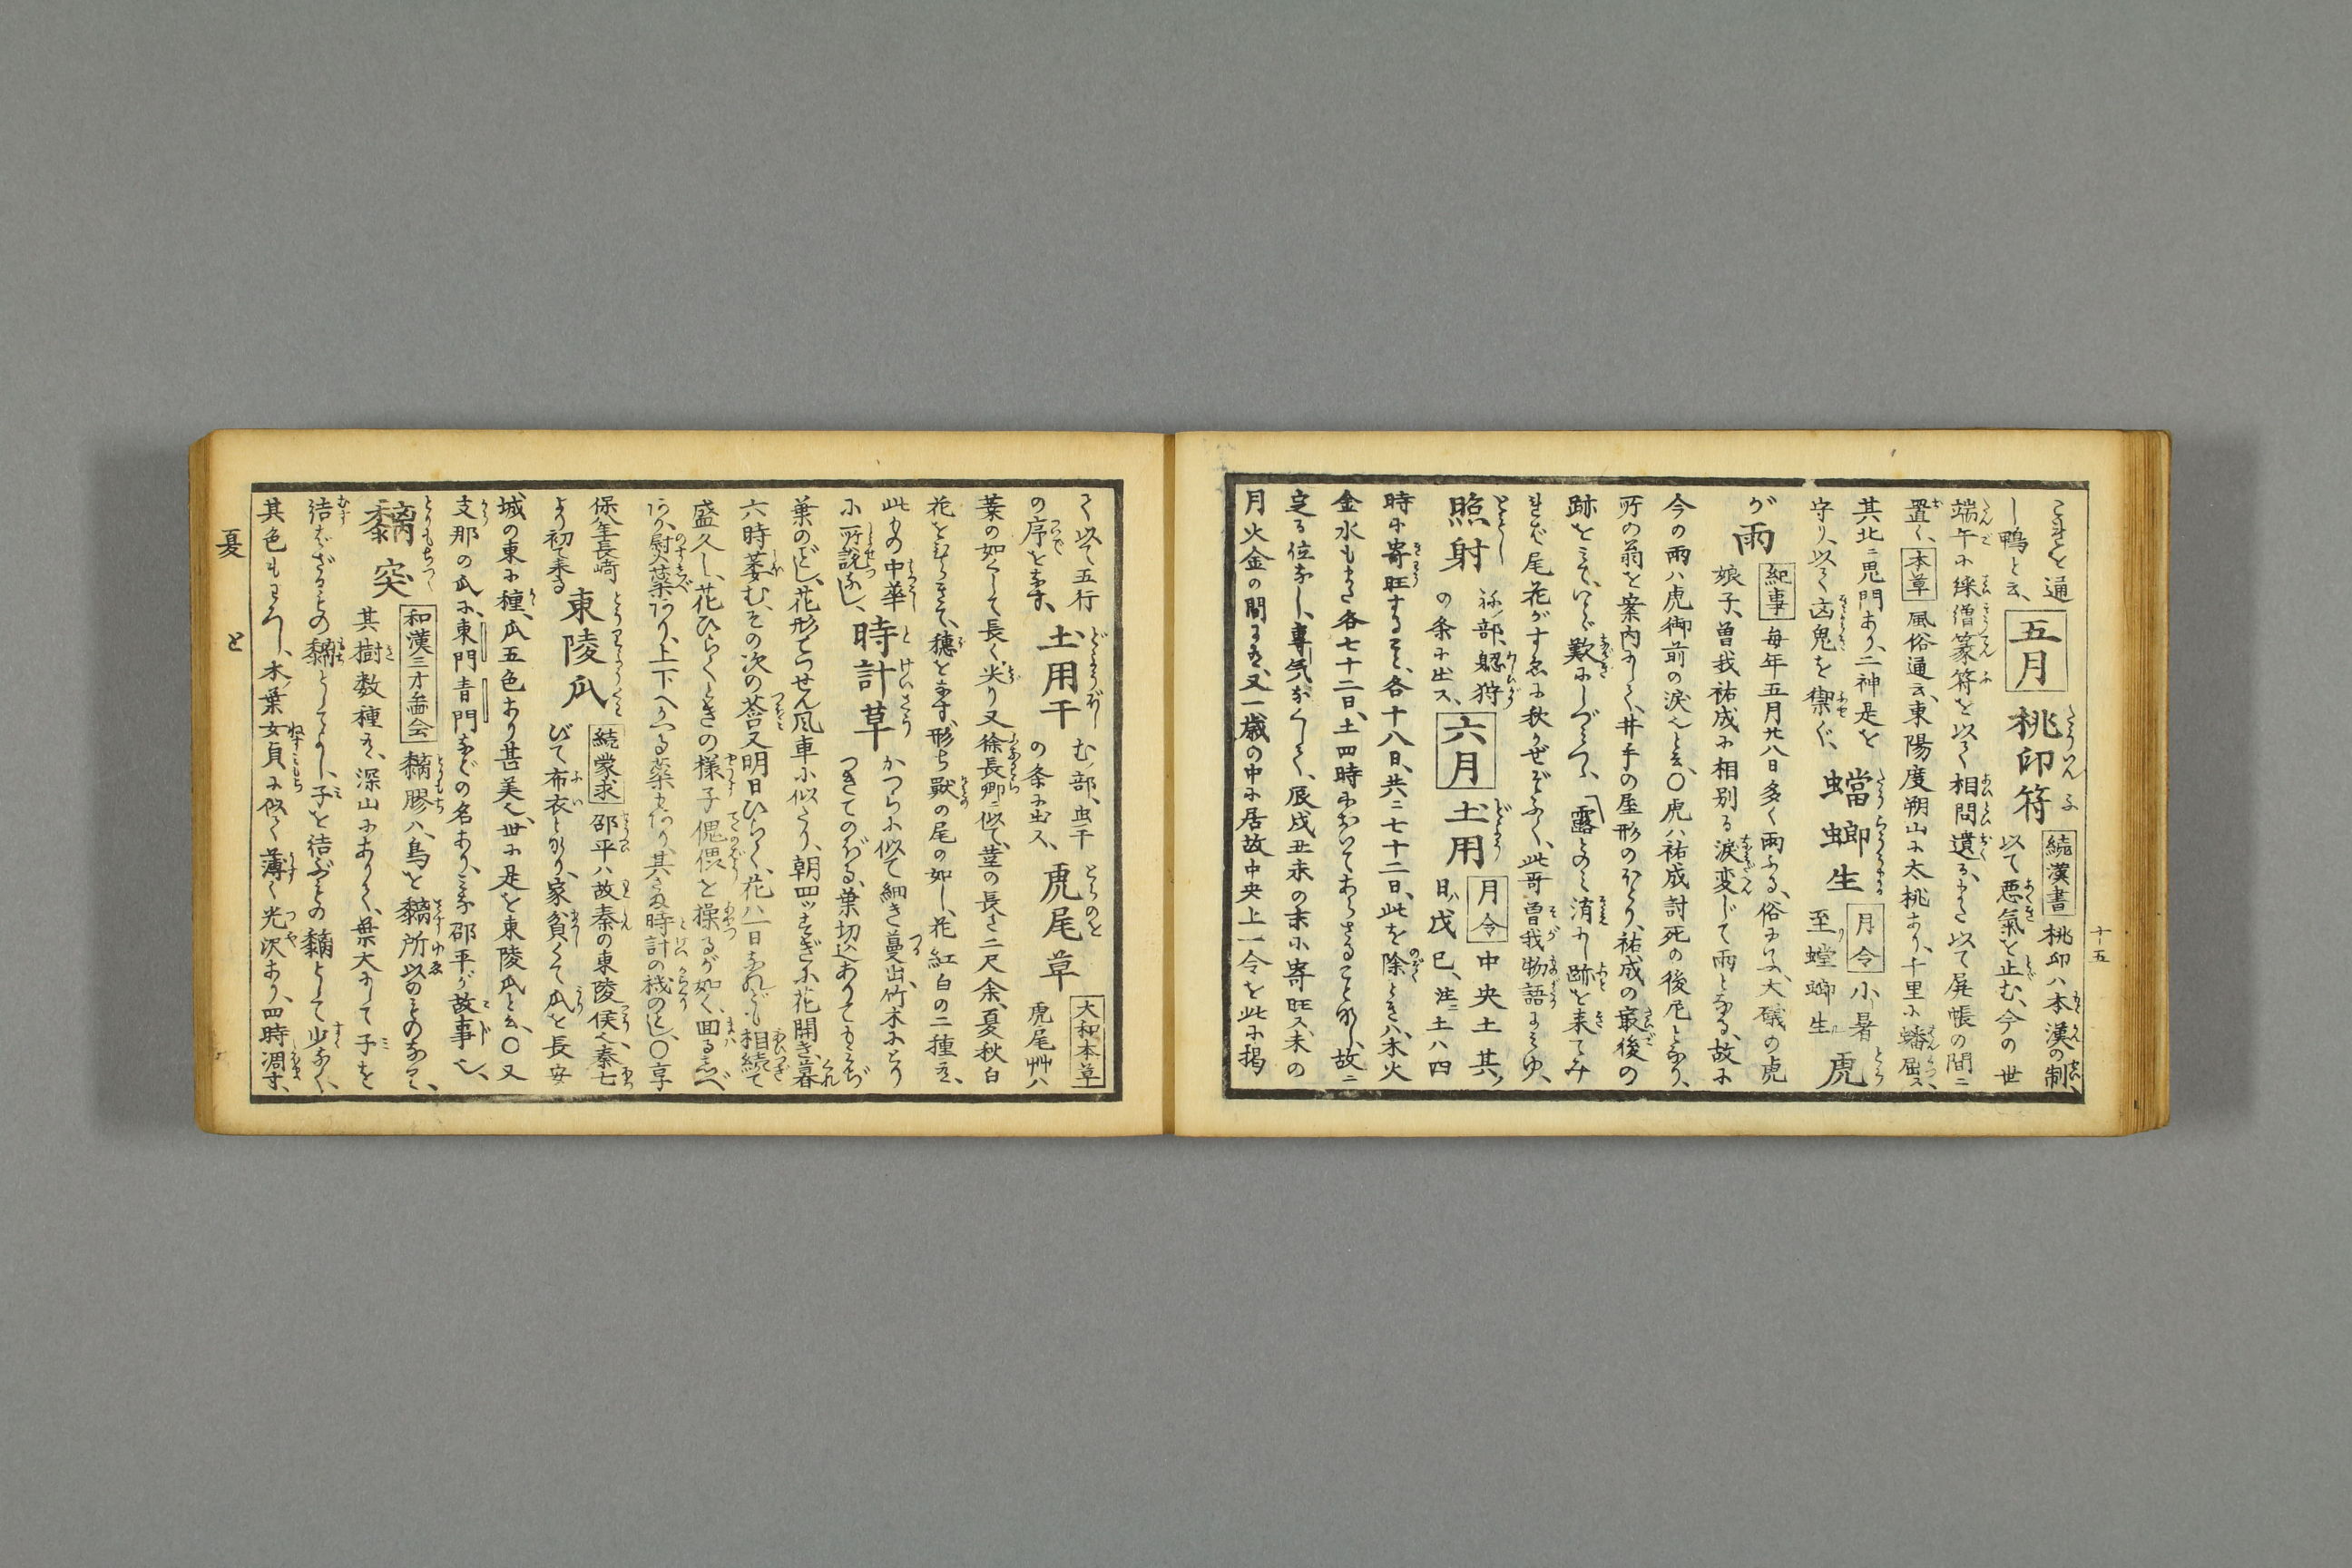 十五
これを通
し鴨と云、
五月
桃印符
続漢書 桃卯ハ本漢の制、
以て悪氣を止む、今の世
端午に綵僧篆符を以て相問遺る、また以て屏帳の間ニ
置く、本草 風俗通云、東陽度朔山に大桃あり、千里に蟠屈ス、
其北ニ鬼門あり、二神是を
守り、以て凶鬼を禦ぐ、
蟷螂生
月令 小暑
至螳螂生
虎
が雨
紀事 毎年五月廿八日多く雨ふる、俗にいふ、大礒の虎
娘子、曽我祐成に相別る涙変じて雨となる、故に
今の雨ハ虎御前の涙也と云、〇虎ハ祐成討死の後尼となり、
所の翁を案内にて、井手の屋形のほとり、祐成の最後の
跡をミて、いとゞ歎にしづミつゝ、「露とのミ消にし跡を来てみ
れば尾花がすゑに秋かぜぞふく、此哥曽我物語にミゆ、
照射
ね部、照狩
の条に出ス、
六月
土用
月令 中央土其
日戊巳、注ニ土ハ四
時に寄旺すること、各十八日、共ニ七十二日、此を除ときハ、木火
金水もまた各七十二日、土四時においてあらざることなし、故ニ
定る位なし、専気なくして、辰戌丑未の末に寄旺ス、未の
月火金の間にあり、又一歳の中に居故中央土一令を此に掲
て以て五行
の序をなす、
土用干
む部、虫干
の条に出ス、
虎尾草
大和本草
虎尾艸ハ
葉の如くして長く、尖り又徐長卿ニ似て、茎の長さ二尺余、夏秋白
花をひらきて、穂をなす、形ち獣の尾の如し、花紅白の二種あり、
此もの中華
に所説なし、
時計草
かつらに似て細き蔓出、竹木にとり
つきてのぼる、葉切込ありてもミぢ
葉のごとし、花形てつせん風車に似たり、朝四ッすぎに花開き、暮
六時萎む、その次の莟又明日ひらく、花ハ一日なれども相続て
盛久し、花ひらくときの様子傀儡を操るが如く、回るしべ、
保年長崎
より初て来る
東陵瓜
続蒙求 邵平ハ故秦の東陵侯也、秦亡
びて布衣となり、家貧くて瓜を長安
城の東に種、瓜五色あり甚美也、世に是を東陵瓜と云、〇又
支那の瓜に、東門青門などの名あり、ミな邵平が故事也、
黐突
和漢三才圖会 黐膠ハ、鳥を黐所以のものなり、
其樹数種あり、深山にありて、葉大にして子を
結ばざるもの黐としてよし、子を結ぶもの黐として少なく、
其色もわろし、木ノ葉女貞に似て薄く光沢あり、四時凋ず、
夏
と